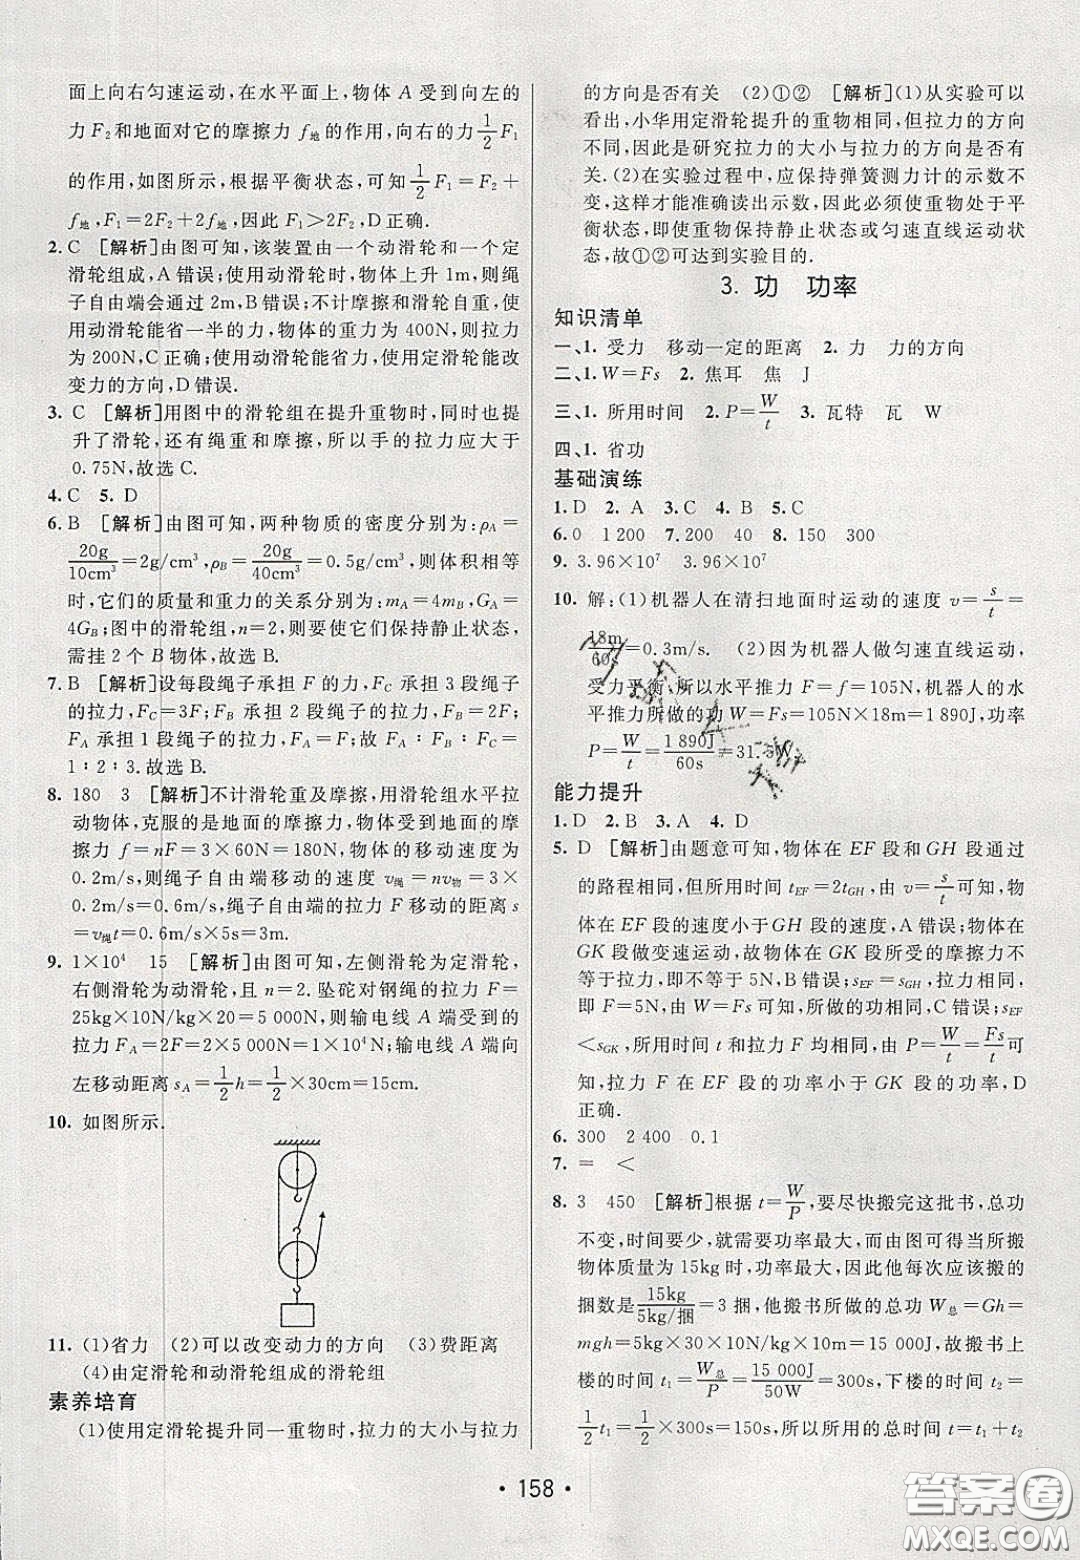 面上向右匀速运动,在水平面上,物体 A 受到向左的
力 F₂ 和地面对它的摩擦力 f地 的作用,向右的力 1/2 F₁
的作用,如图所示,根据平衡状态,可知 1/2 F₁＝F₂＋
f地,F₁＝2F₂＋2f地,因此 F₁＞2F₂,D 正确.
2. C [解析]由图可知,该装置由一个动滑轮和一个定
滑轮组成,A 错误;使用动滑轮时,物体上升 1m,则绳
子自由端会通过 2m,B 错误;不计摩擦和滑轮自重,使
用动滑轮能省一半的力,物体的重力为 400N,则拉力
为 200N,C 正确;使用动滑轮能省力,使用定滑轮能改
变力的方向,D 错误.
3. C [解析]用图中的滑轮组在提升重物时,同时也提
升了滑轮,还有绳重和摩擦,所以手的拉力应大于
0.75N,故选 C.
4. C 5. D
6. B [解析]由图可知,两种物质的密度分别为:ρA＝
20g/10cm³＝2g/cm³,ρB＝20g/40cm³＝0.5g/cm³,则体积相等
时,它们的质量和重力的关系分别为:mA＝4mB,GA＝
4GB;图中的滑轮组,n＝2,则要使它们保持静止状态,
需挂 2 个 B 物体,故选 B.
7. B [解析]设每段绳子承担 F 的力,FC 承担 3 段绳子
的拉力,FC＝3F;FB 承担 2 段绳子的拉力,FB＝2F;
FA 承担 1 段绳子的拉力,FA＝F;故 FA∶FB∶FC＝
1∶2∶3.故选 B.
8. 180 3 [解析]不计滑轮重及摩擦,用滑轮组水平拉
动物体,克服的是地面的摩擦力,物体受到地面的摩
擦力 f＝nF＝3×60N＝180N,物体的移动速度为
0.2m/s,则绳子自由端移动的速度 v绳＝nv物＝3×
0.2m/s＝0.6m/s,绳子自由端的拉力 F 移动的距离 s
＝v绳t＝0.6m/s×5s＝3m.
9. 1×10⁴ 15 [解析]由图可知,左侧滑轮为定滑轮,
右侧滑轮为动滑轮,且 n＝2.坠砣对钢绳的拉力 F＝
25kg×10N/kg×20＝5 000N;则输电线 A 端受到的
拉力 FA＝2F＝2×5 000N＝1×10⁴N;输电线 A 端向
左移动距离 sA＝1/2 h＝1/2×30cm＝15cm.
10. 如图所示.
11. (1)省力 (2)可以改变动力的方向 (3)费距离
(4)由定滑轮和动滑轮组成的滑轮组
素养培育
(1)使用定滑轮提升同一重物时,拉力的大小与拉力
的方向是否有关 (2)①② [解析](1)从实验可以
看出,小华用定滑轮提升的重物相同,但拉力的方向
不同,因此是研究拉力的大小与拉力的方向是否有
关.(2)在实验过程中,应保持弹簧测力计的示数不
变,这样才能准确读出示数,因此必须使重物处于平
衡状态,即使重物保持静止状态或匀速直线运动状
态,故①②可达到实验目的.
3. 功 功率
知识清单
一、1. 受力 移动一定的距离 2. 力 力的方向
二、1. W＝Fs 2. 焦耳 焦 J
三、1. 所用时间 2. P＝W/t 3. 瓦特 瓦 W
四、1. 省功
基础演练
1. D 2. A 3. C 4. B 5. C
6. 0 1 200 7. 200 40 8. 150 300
9. 3.96×10⁷ 3.96×10⁷
10. 解:(1)机器人在清扫地面时运动的速度 v＝s/t＝
18m/60s＝0.3m/s. (2)因为机器人做匀速直线运动,
受力平衡,所以水平推力 F＝f＝105N,机器人的水
平推力所做的功 W＝Fs＝105N×18m＝1 890J,功率
P＝W/t＝1 890J/60s＝31.5W.
能力提升
1. D 2. B 3. A 4. D
5. D [解析]由题意可知,物体在 EF 段和 GH 段通过
的路程相同,但所用时间 tEF＝2tGH,由 v＝s/t可知,物
体在 EF 段的速度小于 GH 段的速度,A 错误;物体在
GK 段做变速运动,故物体在 GK 段所受的摩擦力不
等于拉力,即不等于 5N,B 错误;sEF＝sGH,拉力相同,
即 F＝5N,由 W＝Fs 可知,所做的功相同,C 错误;sEF
＜sGK,所用时间 t 和拉力 F 均相同,由 P＝W/t＝Fs/t可
知,拉力 F 在 EF 段的功率小于 GK 段的功率,D
正确.
6. 300 2 400 0.1
7. ＝ ＜
8. 3 450 [解析]根据 t＝W/P,要尽快搬完这批书,总功
不变,时间要少,就需要功率最大,而由图可得当所搬
物体质量为 15kg 时,功率最大,因此他每次应该搬的
捆数是15kg/5kg/捆＝3 捆,他搬书所做的总功 W总＝Gh＝
mgh＝5kg/捆×30×10N/kg×10m＝15 000J,故搬书上
楼的时间 t₁＝W总/P＝15 000J/50W＝300s,下楼的时间 t₂＝
1/2 t₁＝1/2×300s＝150s,所以所用的总时间 t＝t₁＋t₂
· 158 ·
答案圈
MXQE.COM